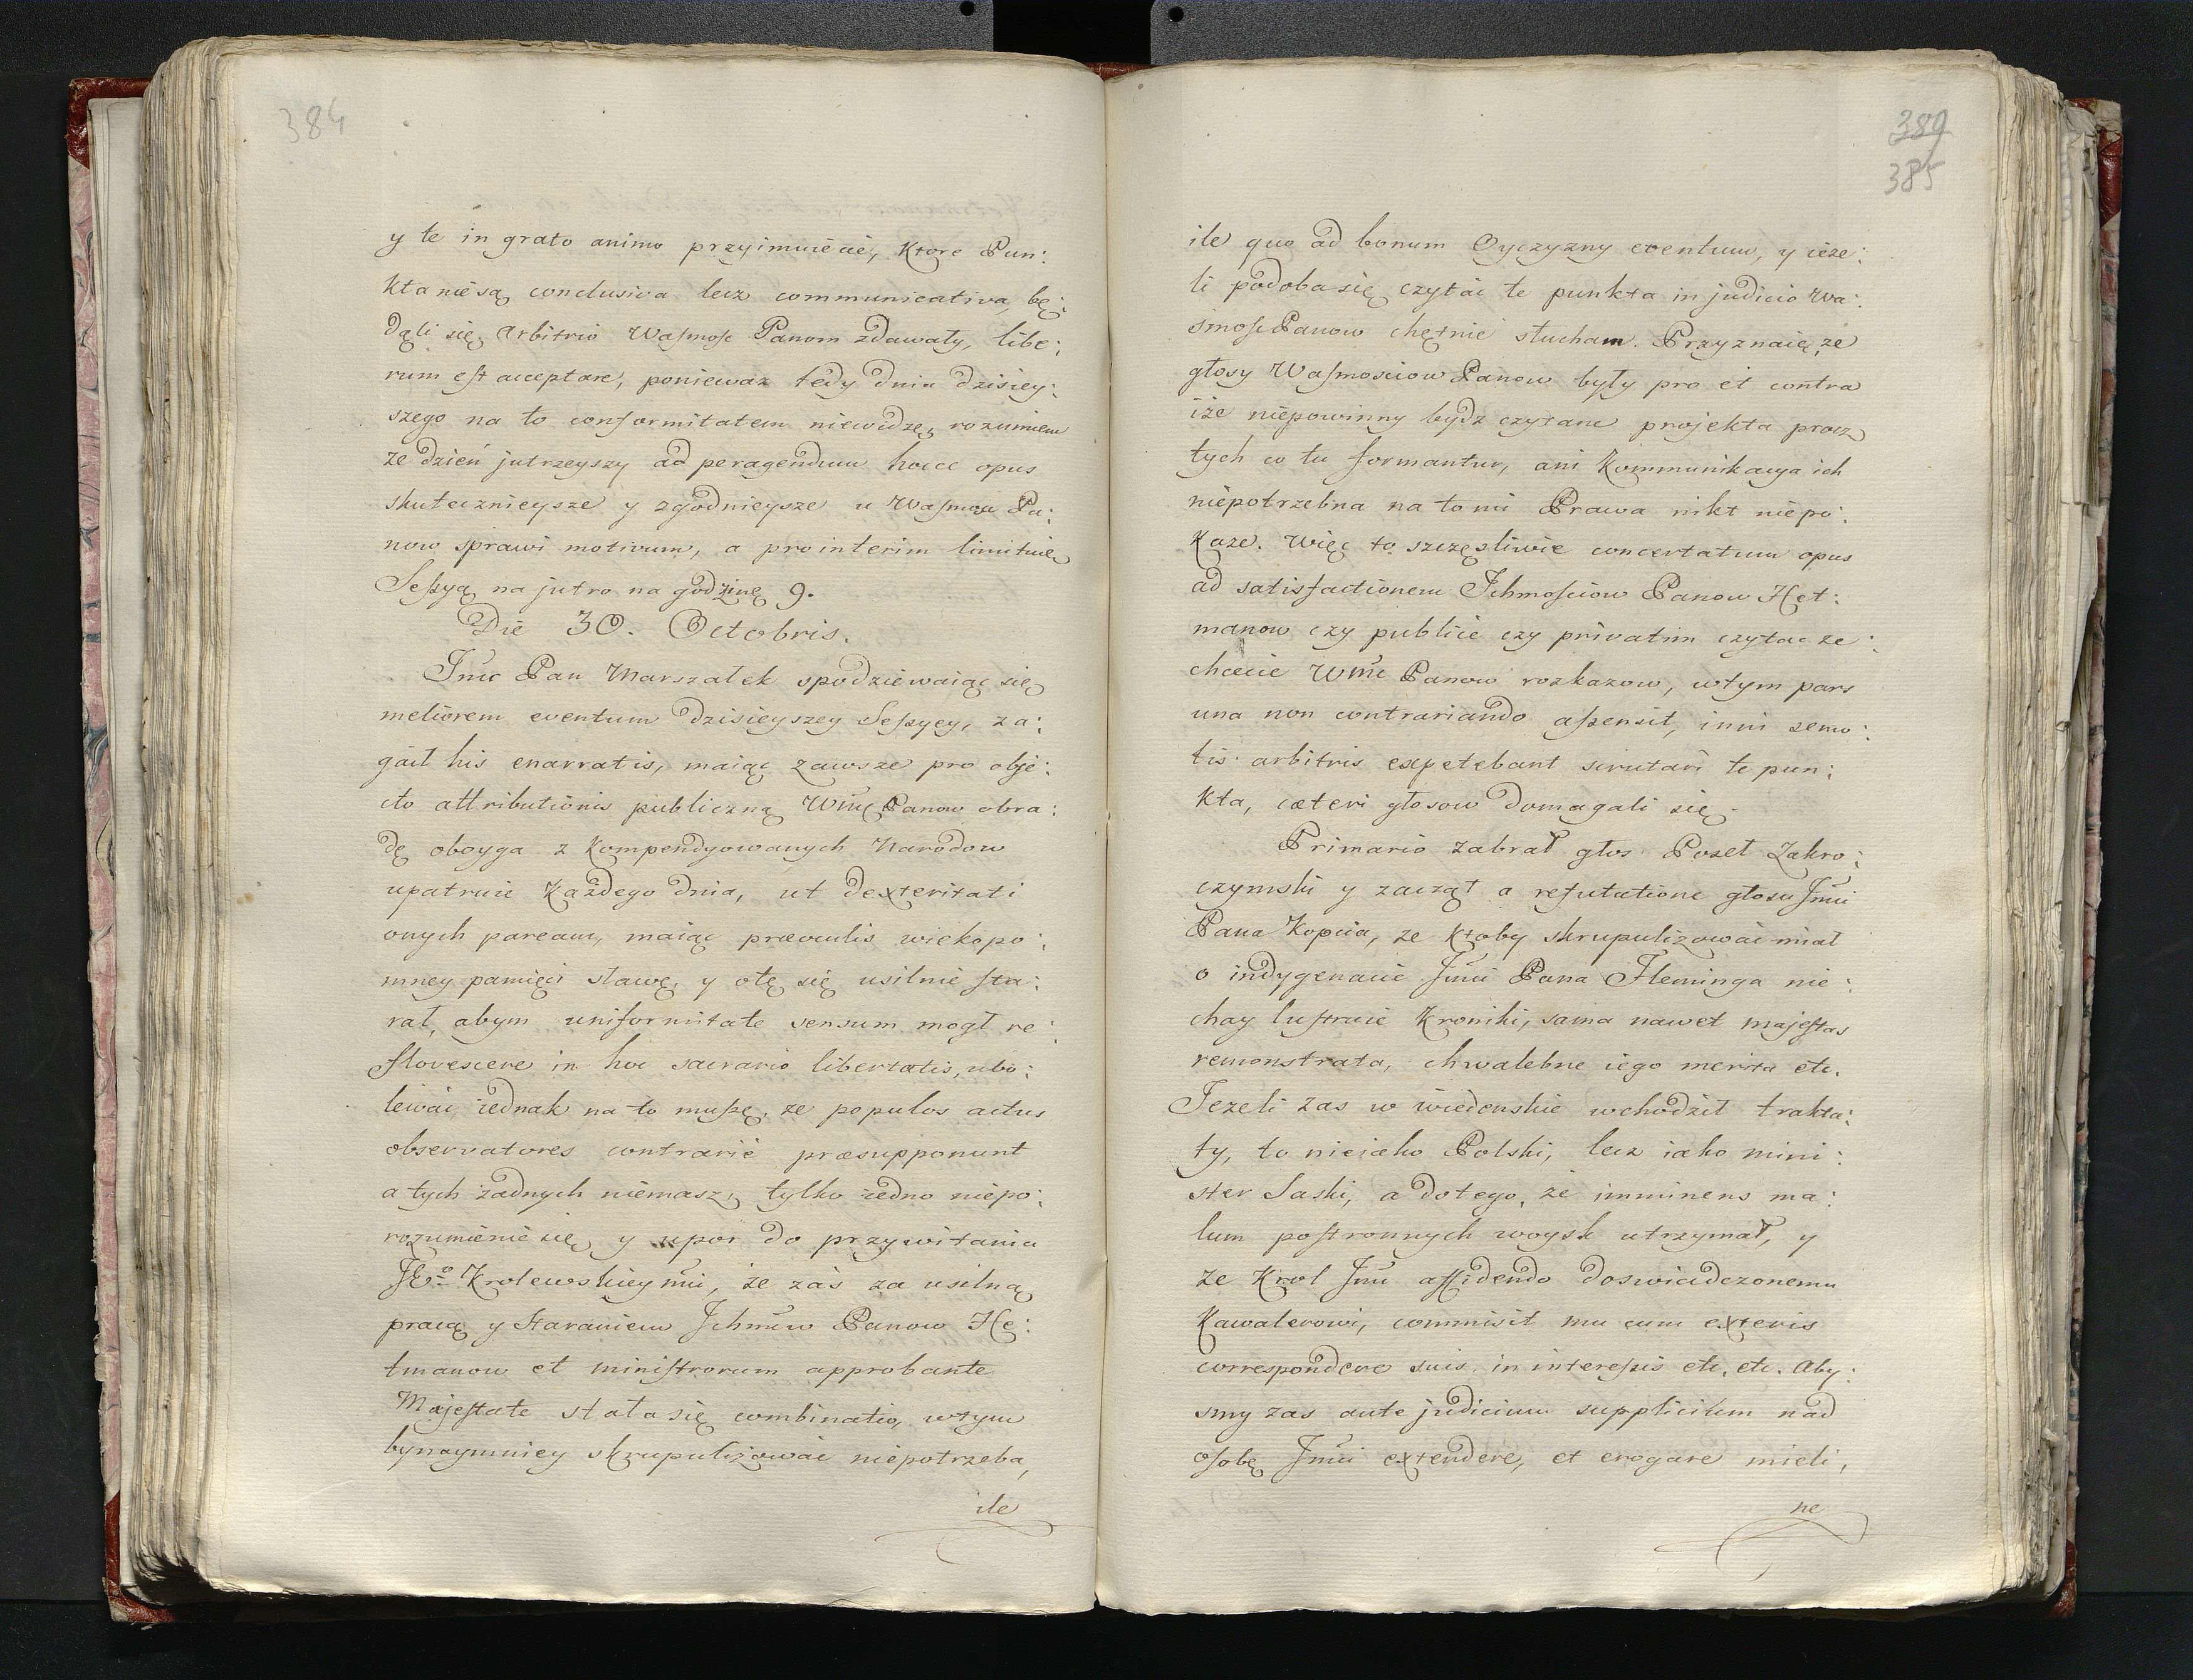 384
y te in grato animo przyimuiecie, ktore Pun:
kta nie są conclusiva lecz communicativa, bę:
dąli się arbitrio Waſmoſc Panom zdawały, libe:
rum eſt acceptare, poniewaz tedy dnia dzisiey:
szego na to conformitatem niewidzę, rozumiem
ze dzień jutrzeyszy ad peragendum hocce opus
skutecznieysze y zgodnieysze u Waſmoſci Pa:
now sprawi motivum, a pro interim limituię
Seſsyą na jutro na godzinę 9.
Die 30. Octobris.
Jmc Pan Marszałek spodziewaiąc się
meliorem eventum dzisieyszey Seſsyey, za:
gaił his enarratis, maiąc zawsze pro obje:
cto attributionis publiczną Wmc Panow obra:
dę oboyga z kompendyowanych Narodow
upatruie każdego dnia, ut dexteritati
onych paream, maiąc præoculis wiekopo:
mney pamięci sławę, y otę się usilnie ſta:
rał, abym uniformitate sensum mogł re:
florescere in hoc sacrario libertatis, ubo:
lewac iednak na to muſzę, ze populos actus
observatores contrarie præsupponunt
a tych żadnych niemasz, tylko iedno niepo:
rozumienie się y upor do przywitania
JEo Krolewskiey mci, że zaś za usilną
pracą y staraniem Ichmciw Panow He:
tmanow et miniſtrorum approbante
Majeſtate stała się combinatio, wtym
bynaymniey skrupulizowac niepotrzeba,
ile
389
385
ile quo ad bonum Oyczyzny eventum, y ieże:
li podoba się czytac te punkta in judicio Wa:
smoſc Panow chętnie słucham. Przyznaię, ze
głosy Waſmosciow Panow były pro et contra
iże niepowinny bydz czytane projekta procz
tych co tu formantur, ani Kommunikacya ich
niepotrzebna na to mi Prawa nikt niepo:
kaze. Więc to szczęsliwie concertatum opus
ad satisfactionem Ichmoſciow Panow Het:
manow czy publice czy privatim czytac ze:
chcecie Wmc Panow rozkazow, wtym pars
una non contrariando aſsensit, inni semo:
tis arbitris expetebant scrutari te pun:
kta, cæteri głosow domagali się.
Primario zabrał głos Poseł Zakro:
czymski y zaczął a refutatione głosu Jmci
Pana Kopcia, ze ktoby skrupulizowac miał
o indygenacie Jmci Pana Fleminga nie:
chay luſtruie Kroniki, sama nawet majeſtas
remonstrata, chwalebne iego merita etc.
Jezeli zas w wiedenskie wchodził trakta:
ty, to nie iako Polski, lecz iako mini:
ster Saski, a dotego, że imminens ma:
lum poſtronnych woysk utrzymał, y
ze Krol Jmc affidendo doswiadczonemu
Kawalerowi, commisit mu cum exteris
correspondere suis in intereſsis etc. etc. Aby:
smy zas ante judicium supplicium nad
oſobę Jmci extendere, et erogare mieli,
ne